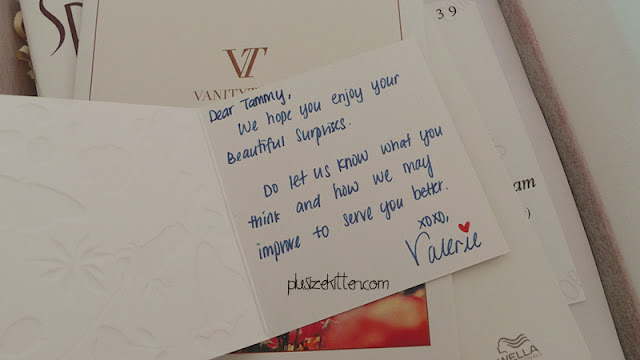 39
VT
VANITYT
Dear Tammy,
We hope you enjoy your
Beautiful Surprises.
Do let us know what you
think and how we may
improve to serve you better.
xoxo,
Valerie
am
plusizekitten.com
WELLA